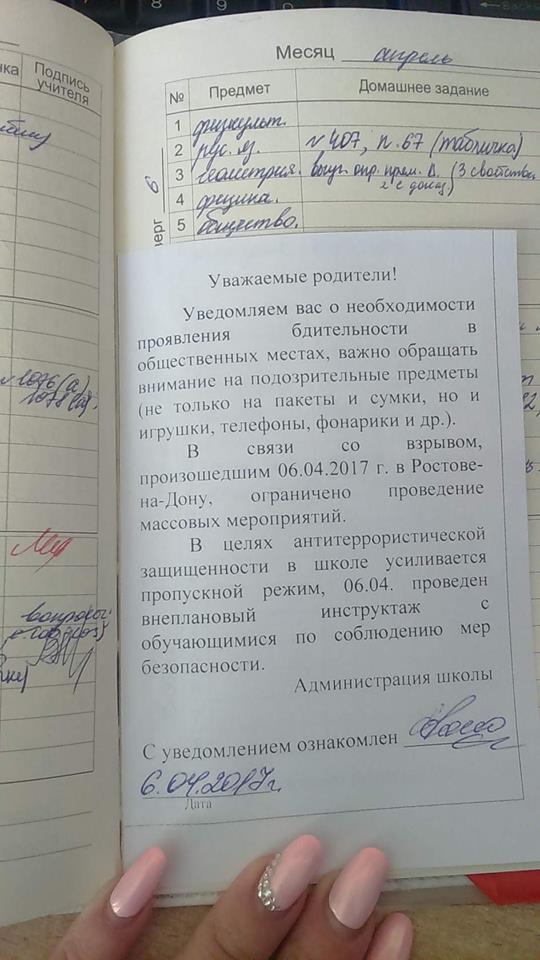 Подпись
учителя
Месяц апрель
№ Предмет Домашнее задание
1 физкульт.
2 рус. яз. №407, п.67 (табличка)
3 геометрия. выуч. опр. прям. Δ. (3 свойства
с доказ.)
4 физика.
5 общество.
6
Уважаемые родители!
Уведомляем вас о необходимости
проявления бдительности в
общественных местах, важно обращать
внимание на подозрительные предметы
(не только на пакеты и сумки, но и
игрушки, телефоны, фонарики и др.).
В связи со взрывом,
произошедшим 06.04.2017 г. в Ростове-
на-Дону, ограничено проведение
массовых мероприятий.
В целях антитеррористической
защищенности в школе усиливается
пропускной режим, 06.04. проведен
внеплановый инструктаж с
обучающимися по соблюдению мер
безопасности.
Администрация школы
С уведомлением ознакомлен
6.04.2017г.
Дата
вопросы